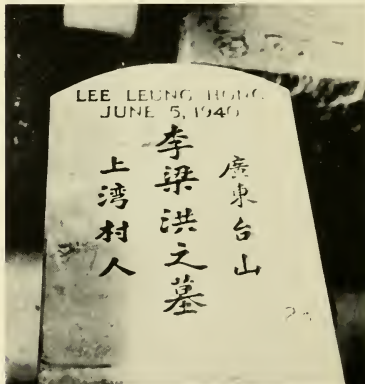 LEE LEUNG HONG
JUNE 5, 1940
廣東台山
李梁洪之墓
上湾村人